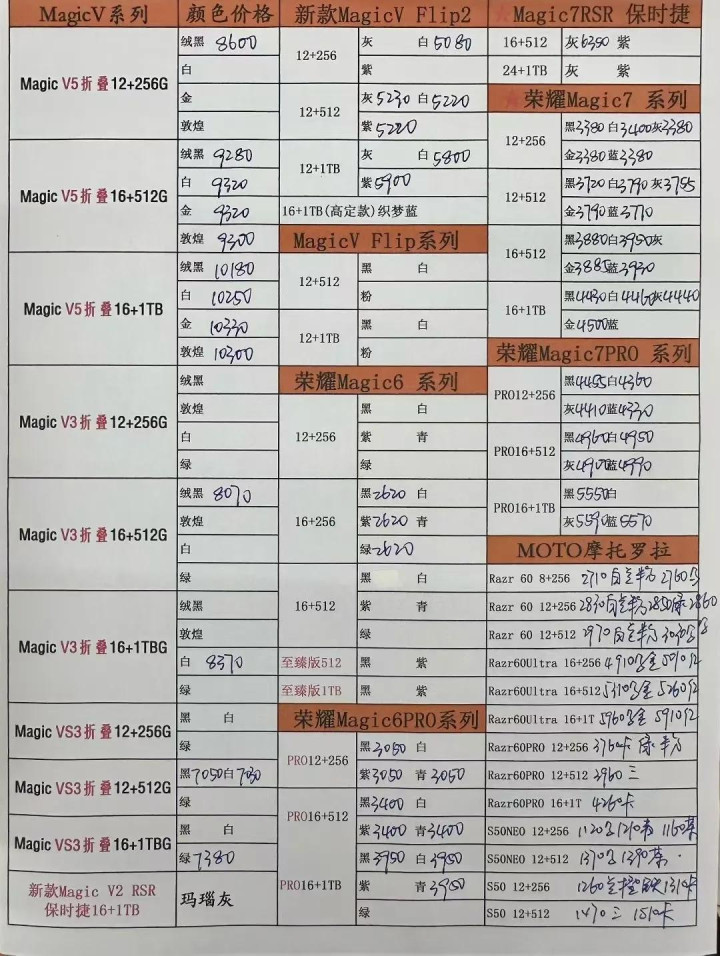 MagicV系列 颜色价格
Magic V5折叠12+256G
绒黑 8600
白
金
敦煌
Magic V5折叠16+512G
绒黑 9280
白 9320
金 9320
敦煌 9300
Magic V5折叠16+1TB
绒黑 10180
白 10250
金 10330
敦煌 10300
Magic V3折叠12+256G
绒黑
敦煌
白
绿
Magic V3折叠16+512G
绒黑 8070
敦煌
白
绿
Magic V3折叠16+1TBG
绒黑
敦煌
白 8370
绿
Magic VS3折叠12+256G
黑 白
绿
Magic VS3折叠12+512G
黑7050白
绿
Magic VS3折叠16+1TBG
黑 白
绿7380
新款Magic V2 RSR
保时捷16+1TB
玛瑙灰
新款MagicV Flip2
12+256
灰 白5080
紫
12+512
灰5230 白5220
紫5220
12+1TB
灰 白5800
紫5900
16+1TB(高定款)织梦蓝
MagicV Flip系列
12+512
黑 白
粉
12+1TB
黑 白
粉
荣耀Magic6 系列
12+256
黑 白
紫 青
绿
16+256
黑2620 白
紫2620 青
绿2620
16+512
黑 白
紫 青
绿
至臻版512 黑 紫
至臻版1TB 黑 紫
荣耀Magic6PRO系列
PRO12+256
黑3050 白
紫3050 青3050
PRO16+512
黑3400 白
紫3400 青3400
PRO16+1TB
黑3950 白3950
紫 青3950
绿
★Magic7RSR 保时捷
16+512 灰6350 紫
24+1TB 灰 紫
★荣耀Magic7 系列
12+256
黑3380白3400灰3380
金3380蓝3380
12+512
黑3720白3790灰3755
金3790蓝3770
16+512
黑3880白3950灰
金3885蓝3930
16+1TB
黑4430白4460灰4440
金4500蓝
荣耀Magic7PRO 系列
PRO12+256
黑4455白4360
灰4410蓝4330
PRO16+512
黑4960白4950
灰4900蓝4990
PRO16+1TB
黑5550白
灰5590蓝5570
MOTO摩托罗拉
Razr 60 8+256 2710 2760
Razr 60 12+256 2830 2850绿2860
Razr 60 12+512 2970
Razr60Ultra 16+256 4910
Razr60Ultra 16+512 5260红
Razr60Ultra 16+1T 5960 5910红
Razr60PRO 12+256 3760卡 绿
Razr60PRO 12+512 3960 三
Razr60PRO 16+1T 4260卡
S50NEO 12+256 1120 1210 1160
S50NEO 12+512 1370 1390
S50 12+256 1260 1310卡
S50 12+512 1470 三 1510卡